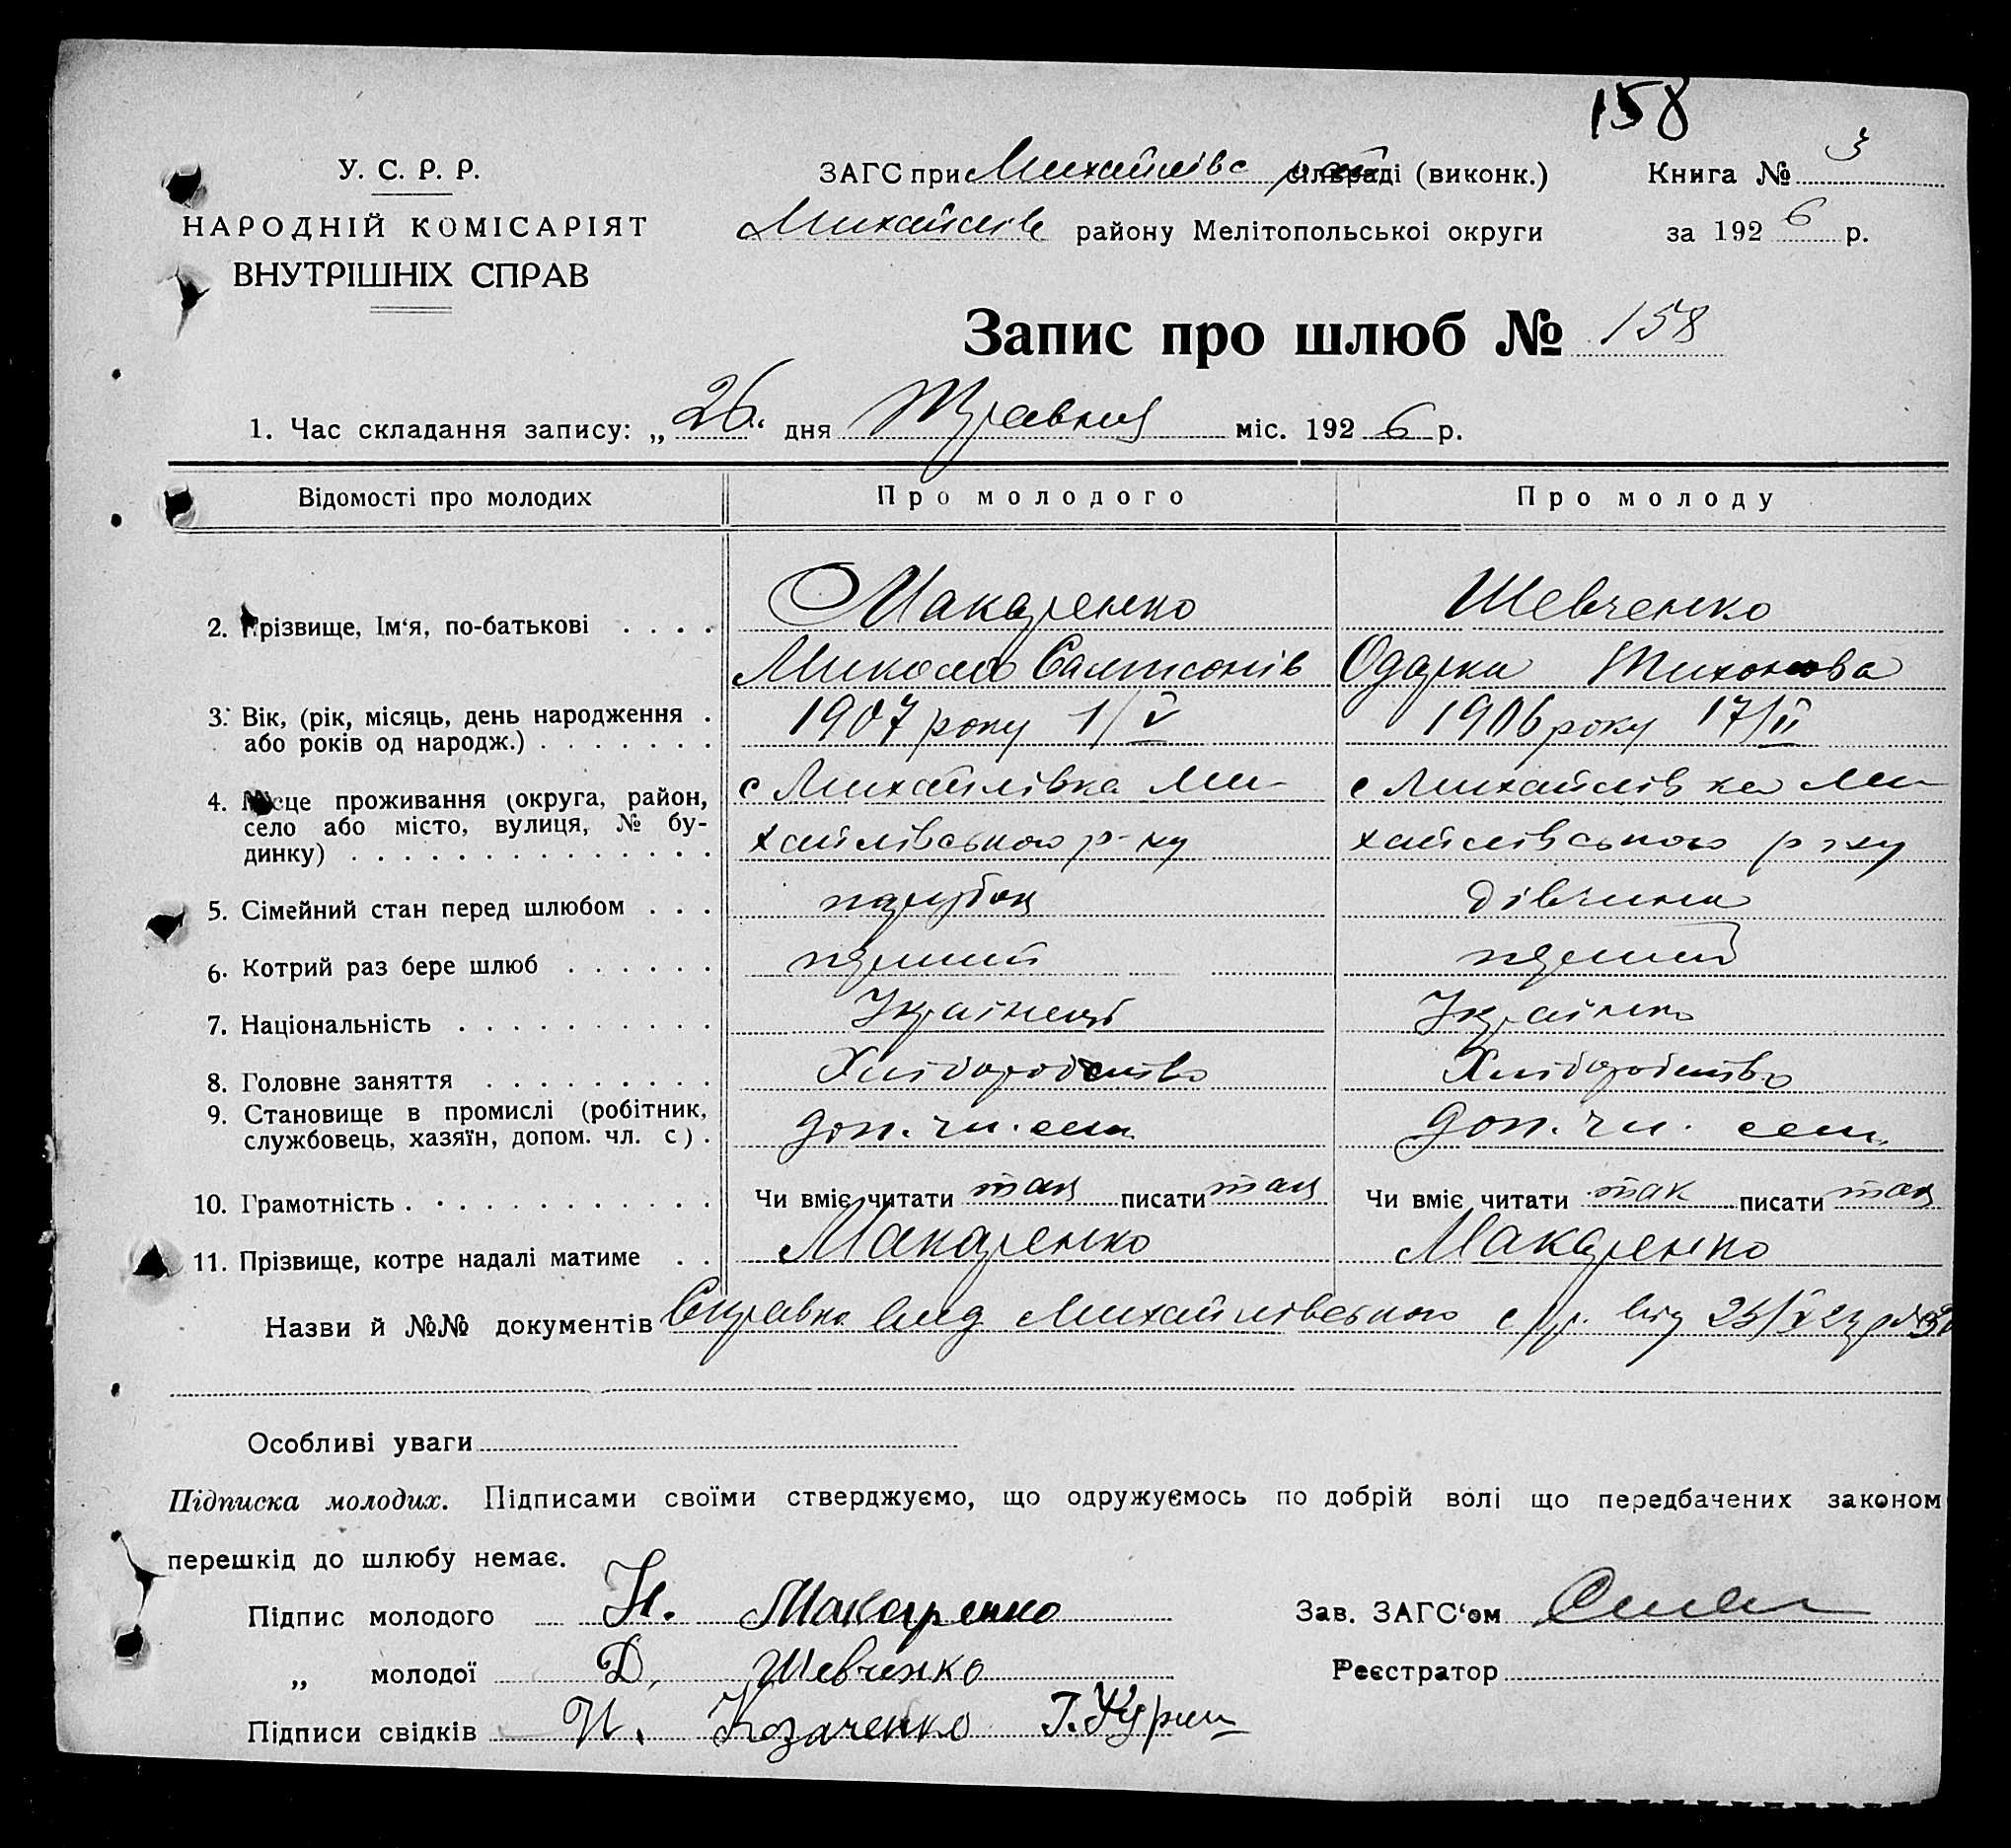 158
У. С. Р. Р.
НАРОДНІЙ КОМІСАРІЯТ
ВНУТРІШНІХ СПРАВ
ЗАГС при Михайлівс сільраді (виконк.)
Михайлів району Мелітопольської округи
Книга № 3
за 1926 р.
Запис про шлюб № 158
1. Час складання запису: „26" дня Травня міс. 1926 р.
Відомості про молодих
Про молодого
Про молоду
2. Прізвище, Ім'я, по-батькові . . . .
Макаренко
Шевченко
Микола Самсонів
Одарка Тихонова
3. Вік, (рік, місяць, день народження .
або років од народж.) . . . . . . .
1907 року 1/V
1906 року 17/II
4. Місце проживання (округа, район,
село або місто, вулиця, № бу-
динку) . . . . . . . . . . . . . .
с Михайлівка Ми-
хайлівського р-ну
с Михайлівка Ми-
хайлівського р-ну
5. Сімейний стан перед шлюбом . . .
парубок
дівчина
6. Котрий раз бере шлюб . . . . . .
перший
перший
7. Національність . . . . . . . . . .
Українець
Українка
8. Головне заняття . . . . . . . . .
Хліборобство
Хліборобство
9. Становище в промислі (робітник,
службовець, хазяїн, допом. чл. с) .
доп. чл. сем.
доп. чл. сем.
10. Грамотність . . . . . . . . . . . .
Чи вміє читати так писати так
Чи вміє читати так писати так
11. Прізвище, котре надалі матиме . .
Макаренко
Макаренко
Назви й №№ документів Справка Михайлівського с/р. від 25/V
Особливі уваги
Підписка молодих. Підписами своїми стверджуємо, що одружуємось по добрій волі що передбачених законом
перешкід до шлюбу немає.
Підпис молодого Н. Макаренко
„ молодої Д. Шевченко
Підписи свідків И. Козаченко Г.
Зав. ЗАГС'ом
Реєстратор